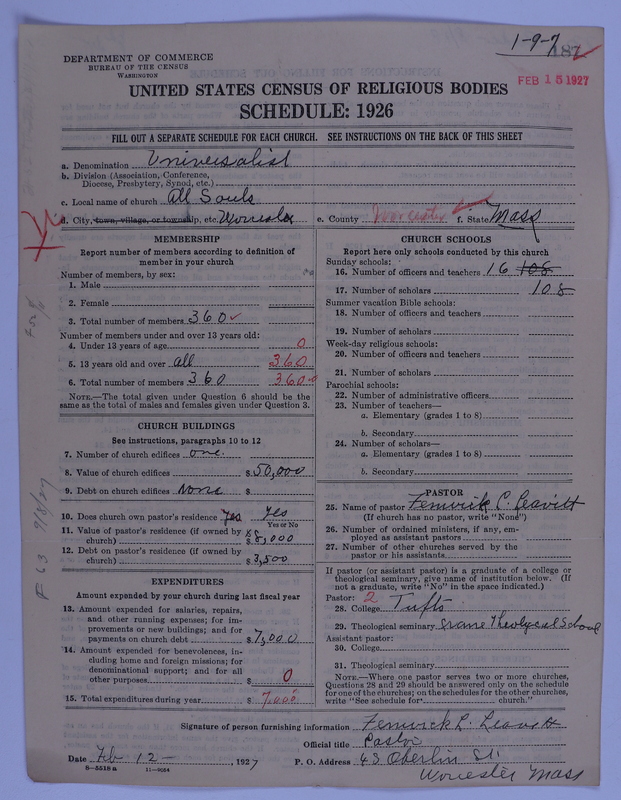 1-9-7
187
DEPARTMENT OF COMMERCE
BUREAU OF THE CENSUS
WASHINGTON
FEB 15 1927
UNITED STATES CENSUS OF RELIGIOUS BODIES
SCHEDULE: 1926
FILL OUT A SEPARATE SCHEDULE FOR EACH CHURCH. SEE INSTRUCTIONS ON THE BACK OF THIS SHEET
a. Denomination Universalist
b. Division (Association, Conference,
Diocese, Presbytery, Synod, etc.)
c. Local name of church All Souls
d. City, town, village, or township, etc. Worcester e. County Worcester f. State Mass
MEMBERSHIP
Report number of members according to definition of
member in your church
Number of members, by sex:
1. Male
2. Female
3. Total number of members 360
Number of members under and over 13 years old:
4. Under 13 years of age 0
5. 13 years old and over all 360
6. Total number of members 360 360
NOTE.—The total given under Question 6 should be the
same as the total of males and females given under Question 3.
CHURCH BUILDINGS
See instructions, paragraphs 10 to 12
7. Number of church edifices one.
8. Value of church edifices $50,000
9. Debt on church edifices None $
10. Does church own pastor's residence Yes Yes
Yes or No
11. Value of pastor's residence (if owned by
church) $8,000
12. Debt on pastor's residence (if owned by
church) $3,500
EXPENDITURES
Amount expended by your church during last fiscal year
13. Amount expended for salaries, repairs,
and other running expenses; for im-
provements or new buildings; and for
payments on church debt $7,000
14. Amount expended for benevolences, in-
cluding home and foreign missions; for
denominational support; and for all
other purposes $ 0
15. Total expenditures during year $ 7,000
CHURCH SCHOOLS
Report here only schools conducted by this church
Sunday schools:
16. Number of officers and teachers 16 108
17. Number of scholars 108
Summer vacation Bible schools:
18. Number of officers and teachers
19. Number of scholars
Week-day religious schools:
20. Number of officers and teachers
21. Number of scholars
Parochial schools:
22. Number of administrative officers
23. Number of teachers—
a. Elementary (grades 1 to 8)
b. Secondary
24. Number of scholars—
a. Elementary (grades 1 to 8)
b. Secondary
PASTOR
25. Name of pastor Fenwick L. Leavitt
(If church has no pastor, write "None")
26. Number of ordained ministers, if any, em-
ployed as assistant pastors
27. Number of other churches served by the
pastor or his assistants
If pastor (or assistant pastor) is a graduate of a college or
theological seminary, give name of institution below. (If
not a graduate, write "No" in the space indicated.)
Pastor: 2
28. College Tufts
29. Theological seminary Crane Theological School
Assistant pastor:
30. College
31. Theological seminary
NOTE.—Where one pastor serves two or more churches,
Questions 28 and 29 should be answered only on the schedule
for one of the churches; on the schedules for the other churches,
write "See schedule for church."
Signature of person furnishing information Fenwick L. Leavitt
Official title Pastor
Date Feb 12 —, 1927 P. O. Address 43 Oberlin St.
Worcester Mass
8-5518a 11-9064